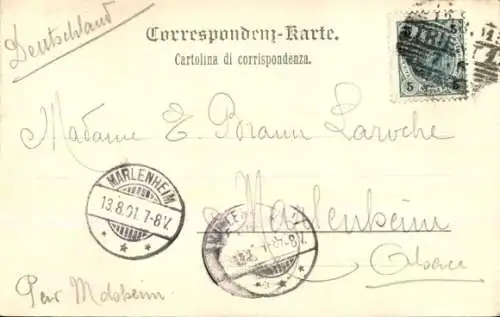 Deutschland
Correspondenz-Karte.
Cartolina di corrispondenza.
5 5
Madame E. Braun Laroche
Marlenheim
Alsace
Per Molsheim
MARLENHEIM
13.8.01. 7-8V.
7-8V.